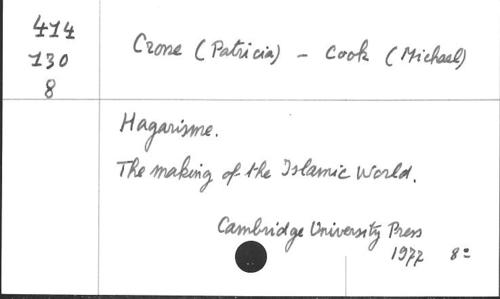 414
130
8
Crone (Patricia) - Cook (Michael)
Hagarisme.
The making of the Islamic World.
Cambridge University Press
1977 8º